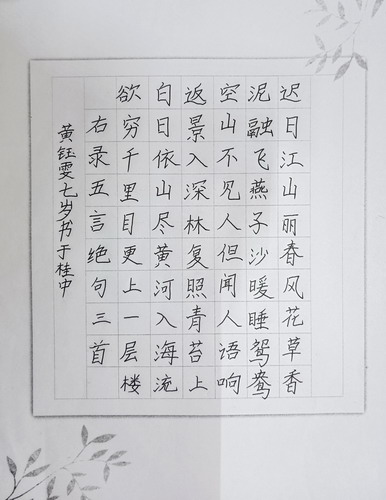 迟日江山丽春风花草香
泥融飞燕子沙暖睡鸳鸯
空山不见人但闻人语响
返景入深林复照青苔上
白日依山尽黄河入海流
欲穷千里目更上一层楼
右录五言绝句三首
黄钰雯七岁书于桂中